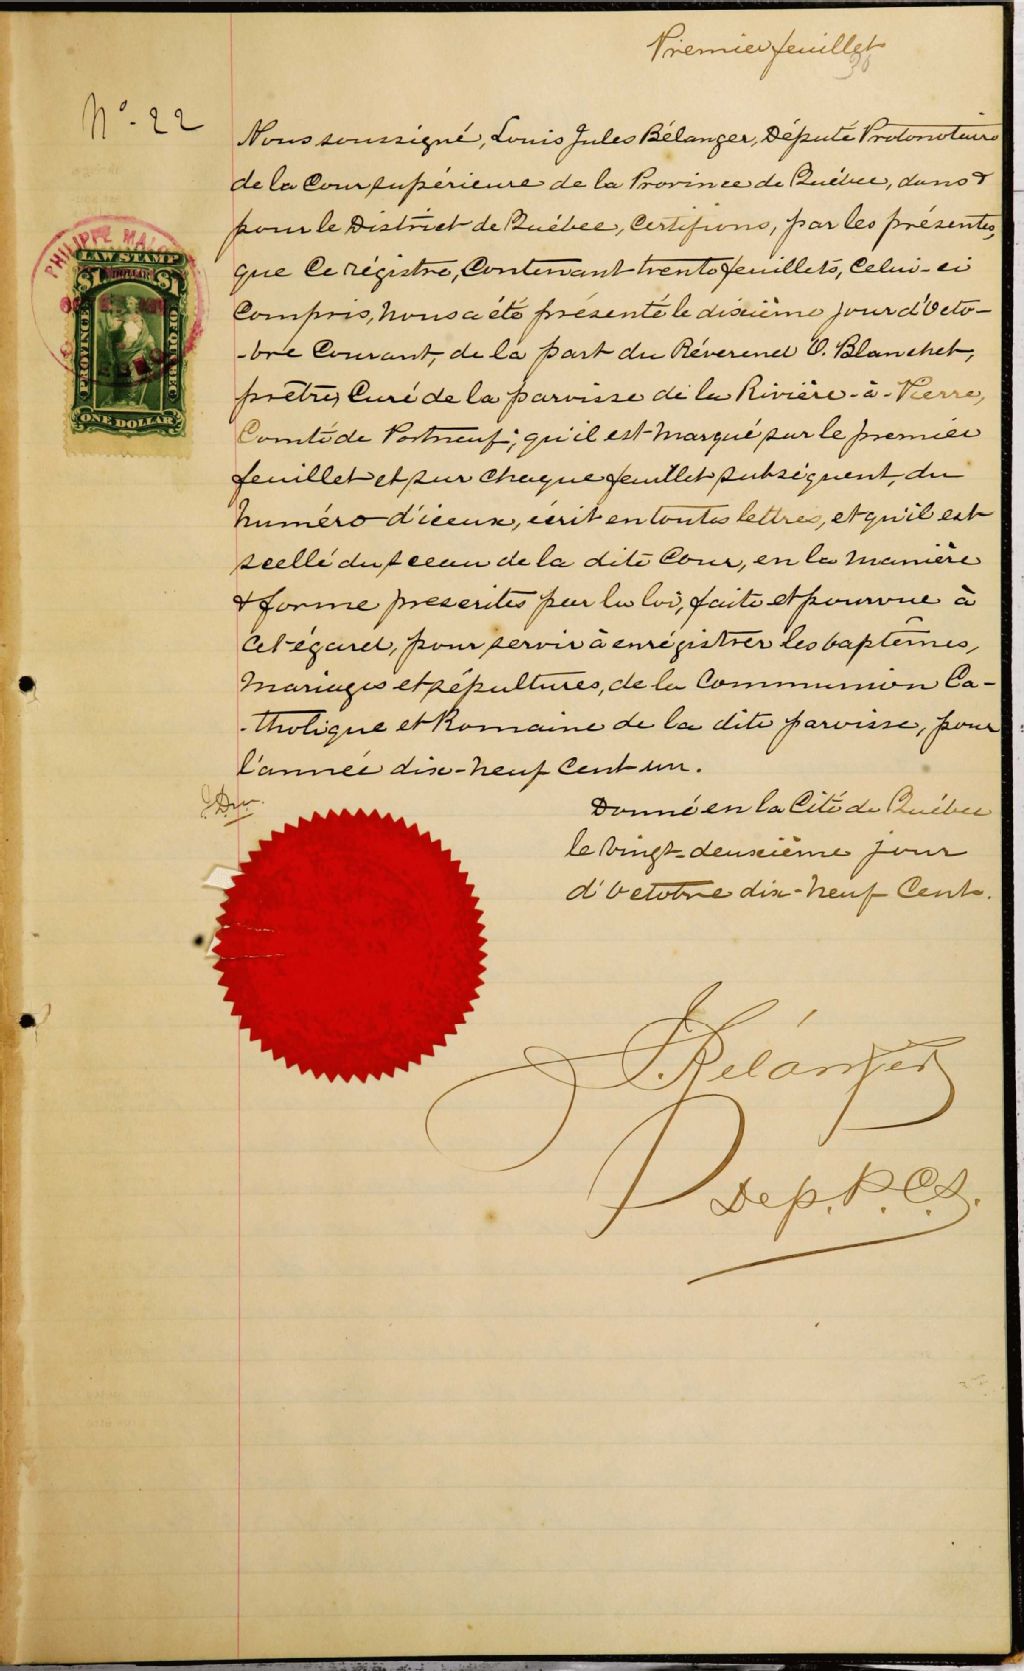 Premier feuillet
30
N° - 22
Nous soussigné, Louis Jules Bélanger, Député Protonotaire
de la Cour supérieure de la Province de Québec, dans &
pour le District de Québec, Certifions, par les présentes,
que Ce régistre, Contenant trente feuillets, Celui-ci
Compris, Nous a été présenté le dixième jour d'Octo-
-bre Courant, de la part du Réverend O. Blanchet,
prêtre, Curé de la paroisse de la Rivière-à-Pierre,
Comté de Portneuf; qu'il est marqué sur le premier
feuillet et sur Chaque feuillet subséquent, du
Numéro d'iceux, écrit en toutes lettres, et qu'il est
scellé du sceau de la dite Cour, en la Manière
& forme prescrites par la loi, faite et pourvue à
Cet égard, pour servir à enrégistrer les baptêmes,
Mariages et sépultures, de la Communion Ca-
-tholique et Romaine de la dite paroisse, pour
l'année dix-Neuf Cent un.
Donné en la Cité de Québec
le Vingt-deuxième jour
d'Octobre dix-Neuf Cent.
PHILIPPE
LAW STAMP
$1 DOLLAR $1
PROVINCE
OF QUEBEC
ONE DOLLAR
J. Bélanger
Dep. P. C. S.